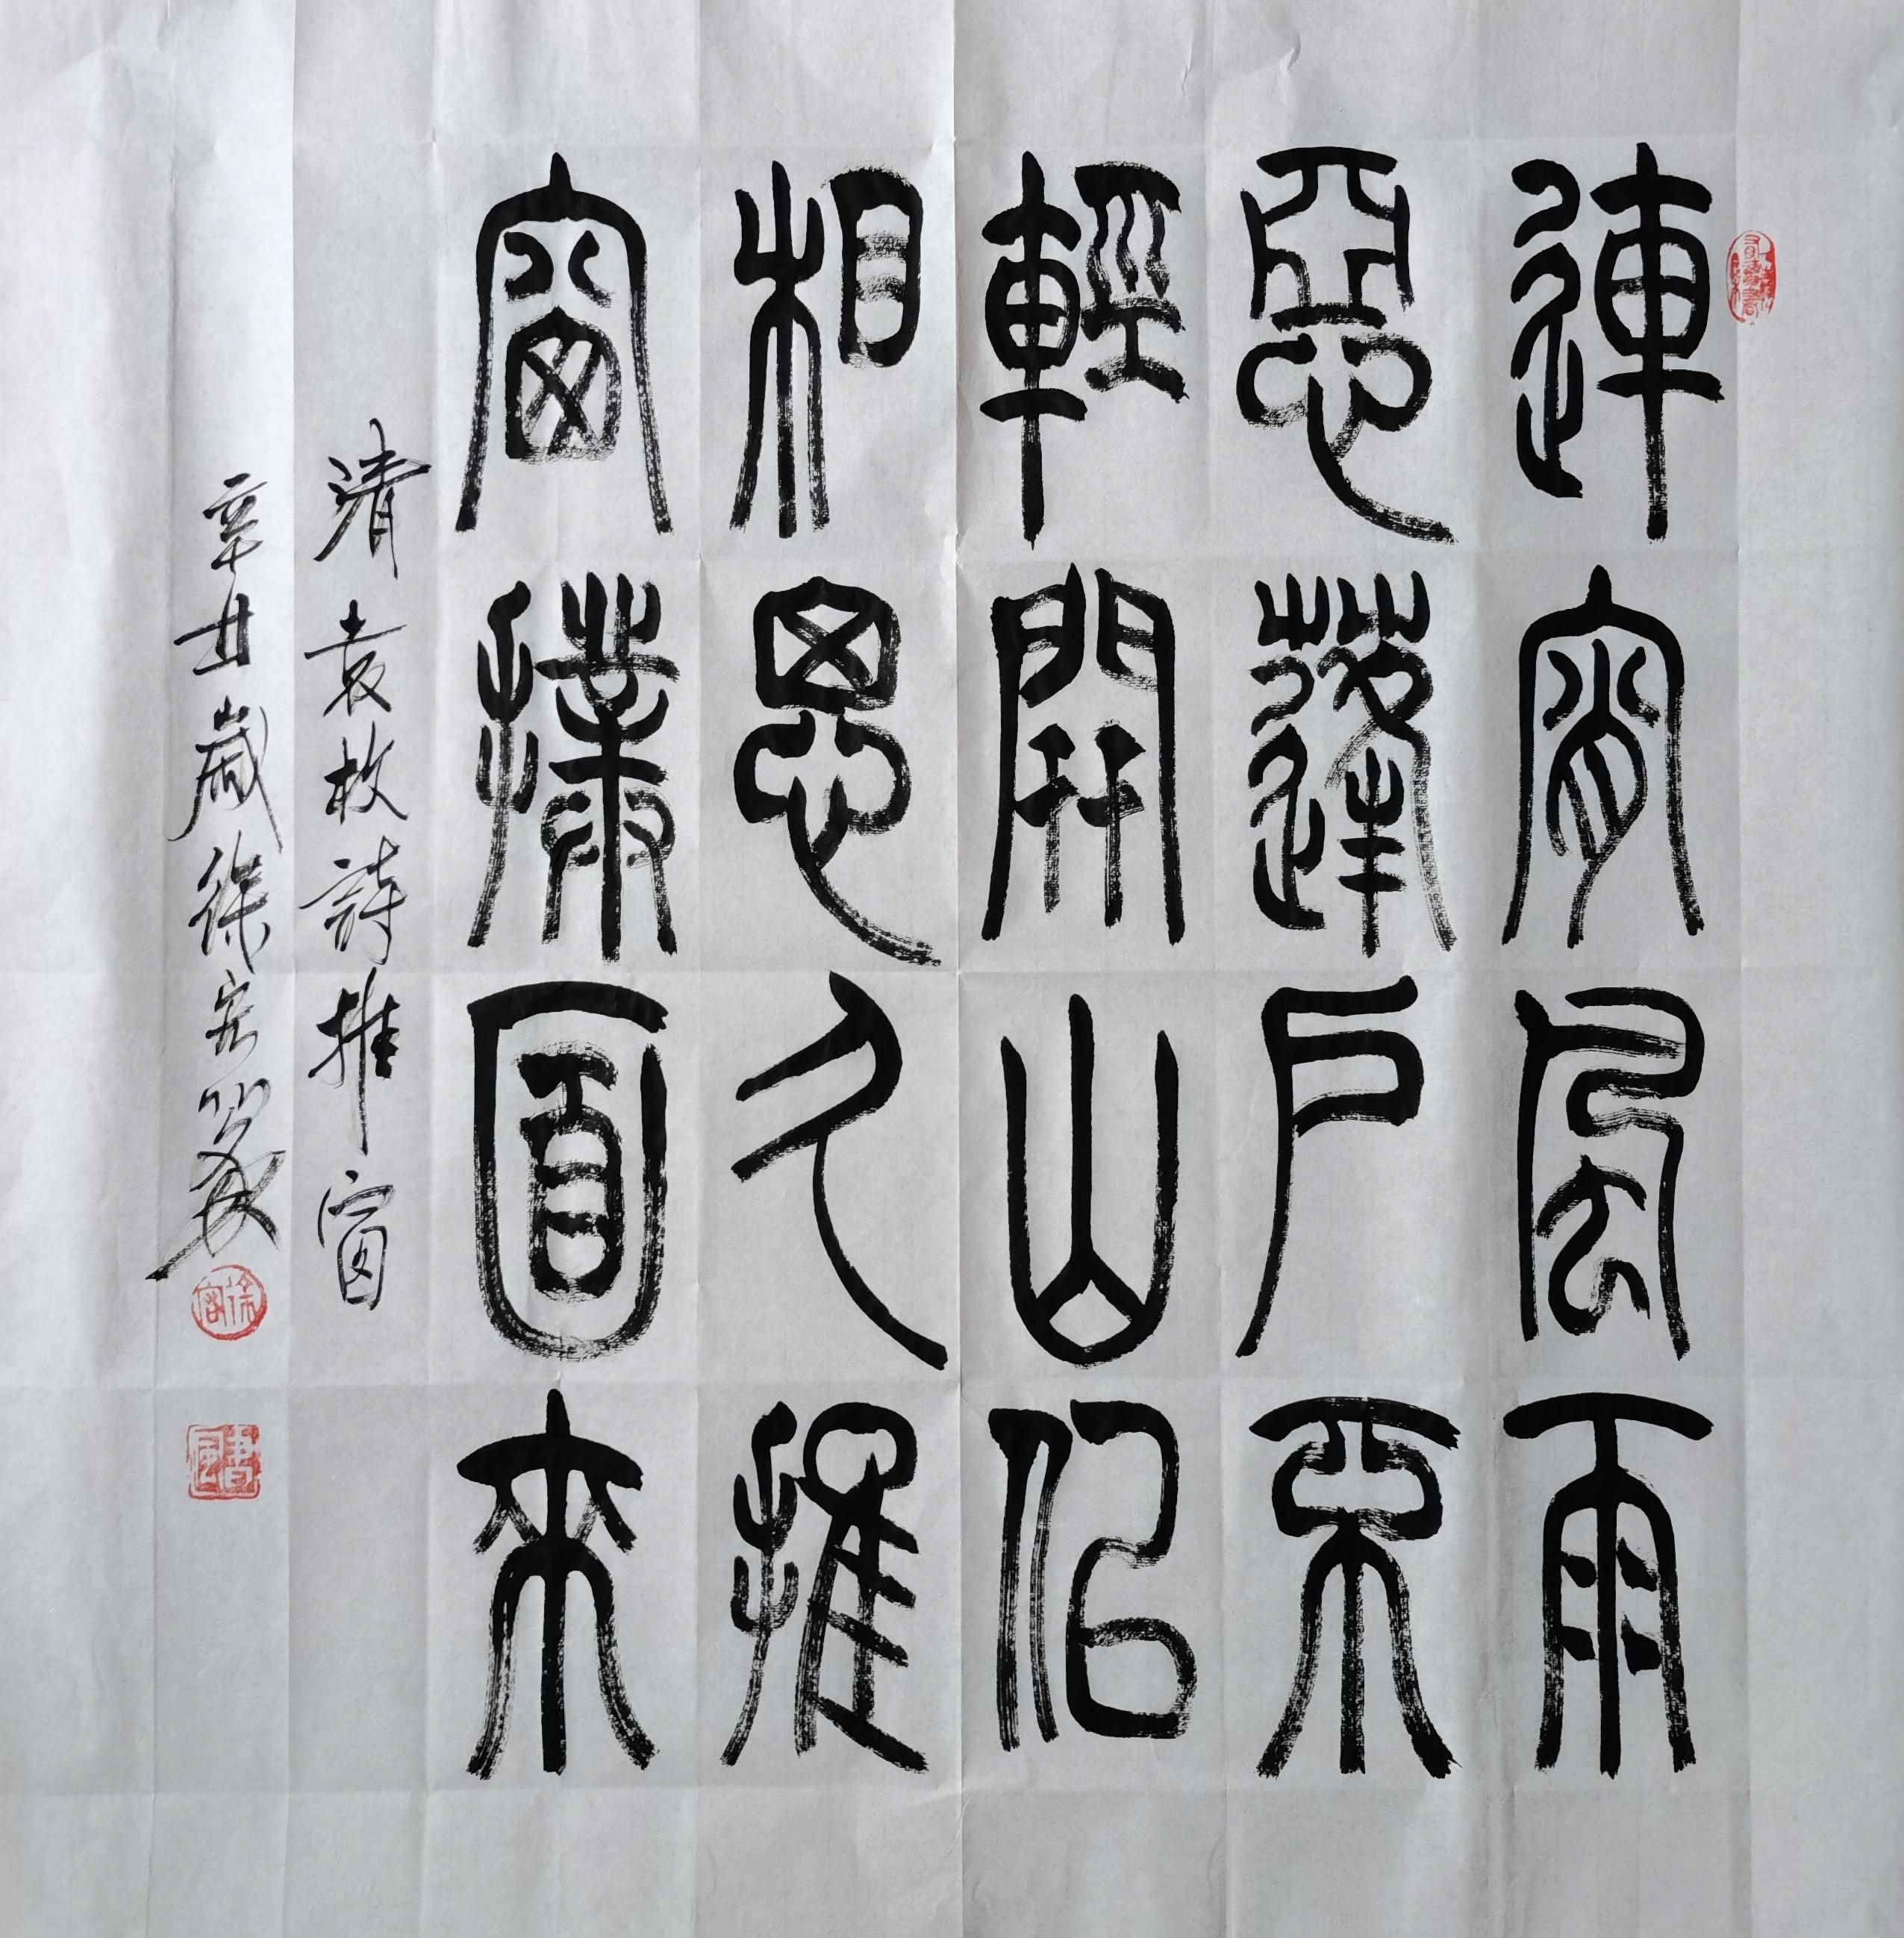 連宵風雨
惡蓬户不
輕開山似
相思久推
窗撲面來
清袁枚詩推窗
辛丑歲徐